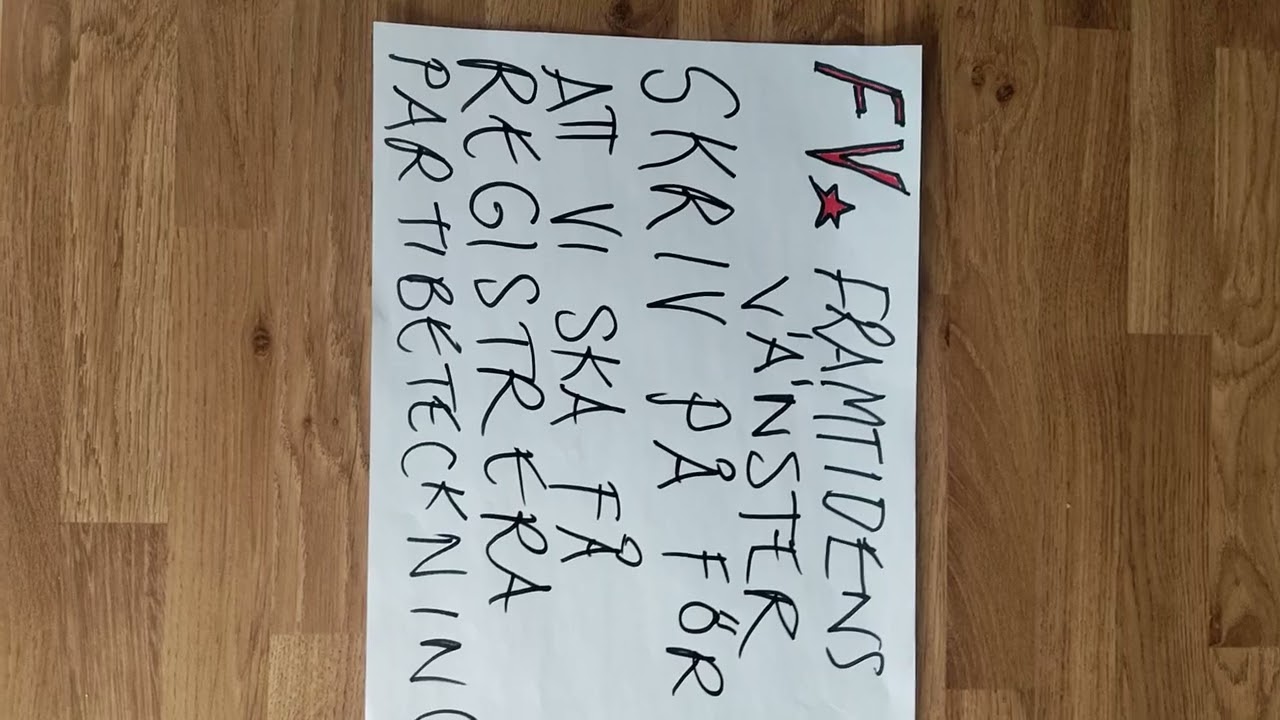 FV★ FRAMTIDENS
VÄNSTER
SKRIV PÅ FÖR
ATT VI SKA FÅ
REGISTRERA
PARTIBETECKNING